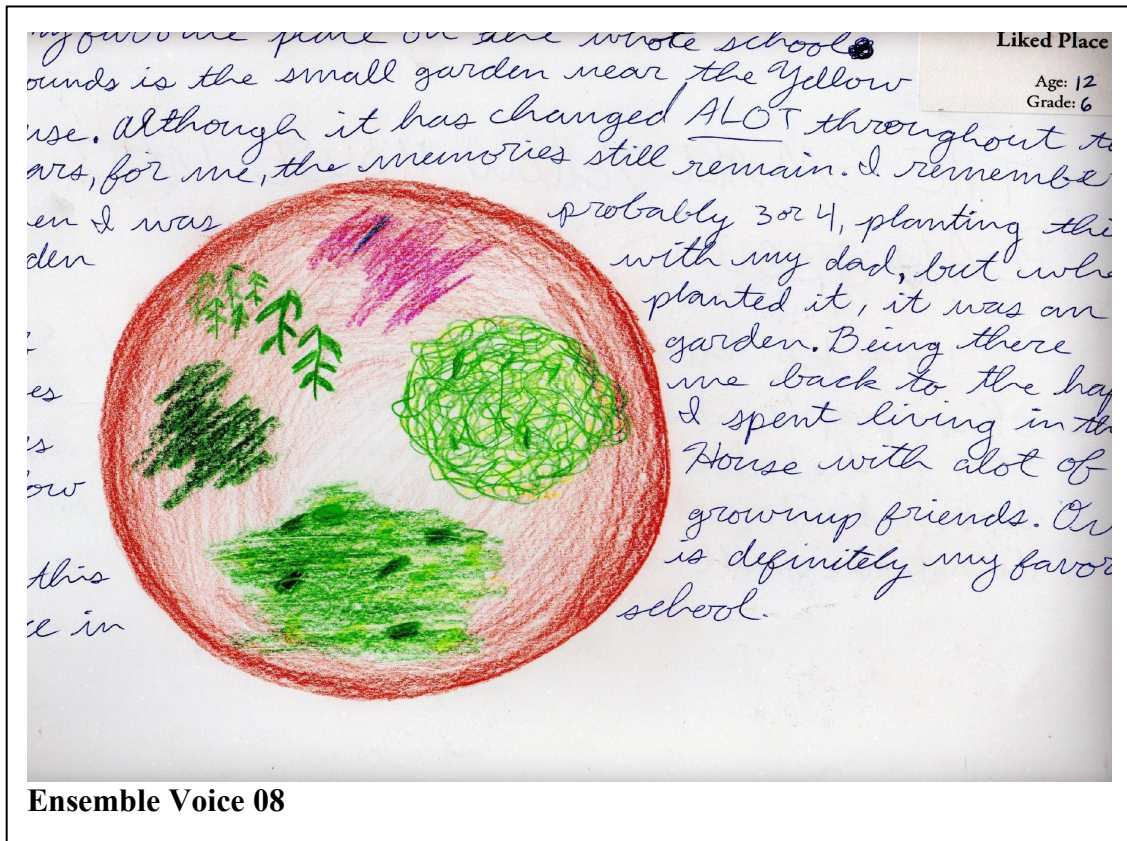 place on the whole school
Liked Place
Age: 12
Grade: 6
ounds is the small garden near the Yellow
use. Although it has changed ALOT throughout
ars, for me, the memories still remain. I remembe
en I was probably 3 or 4, planting thi
den with my dad, but whe
planted it, it was an
garden. Being there
es me back to the hap
s I spent living in th
ow House with alot of
grownup friends. Ov
this is definitely my favor
ce in school.
Ensemble Voice 08